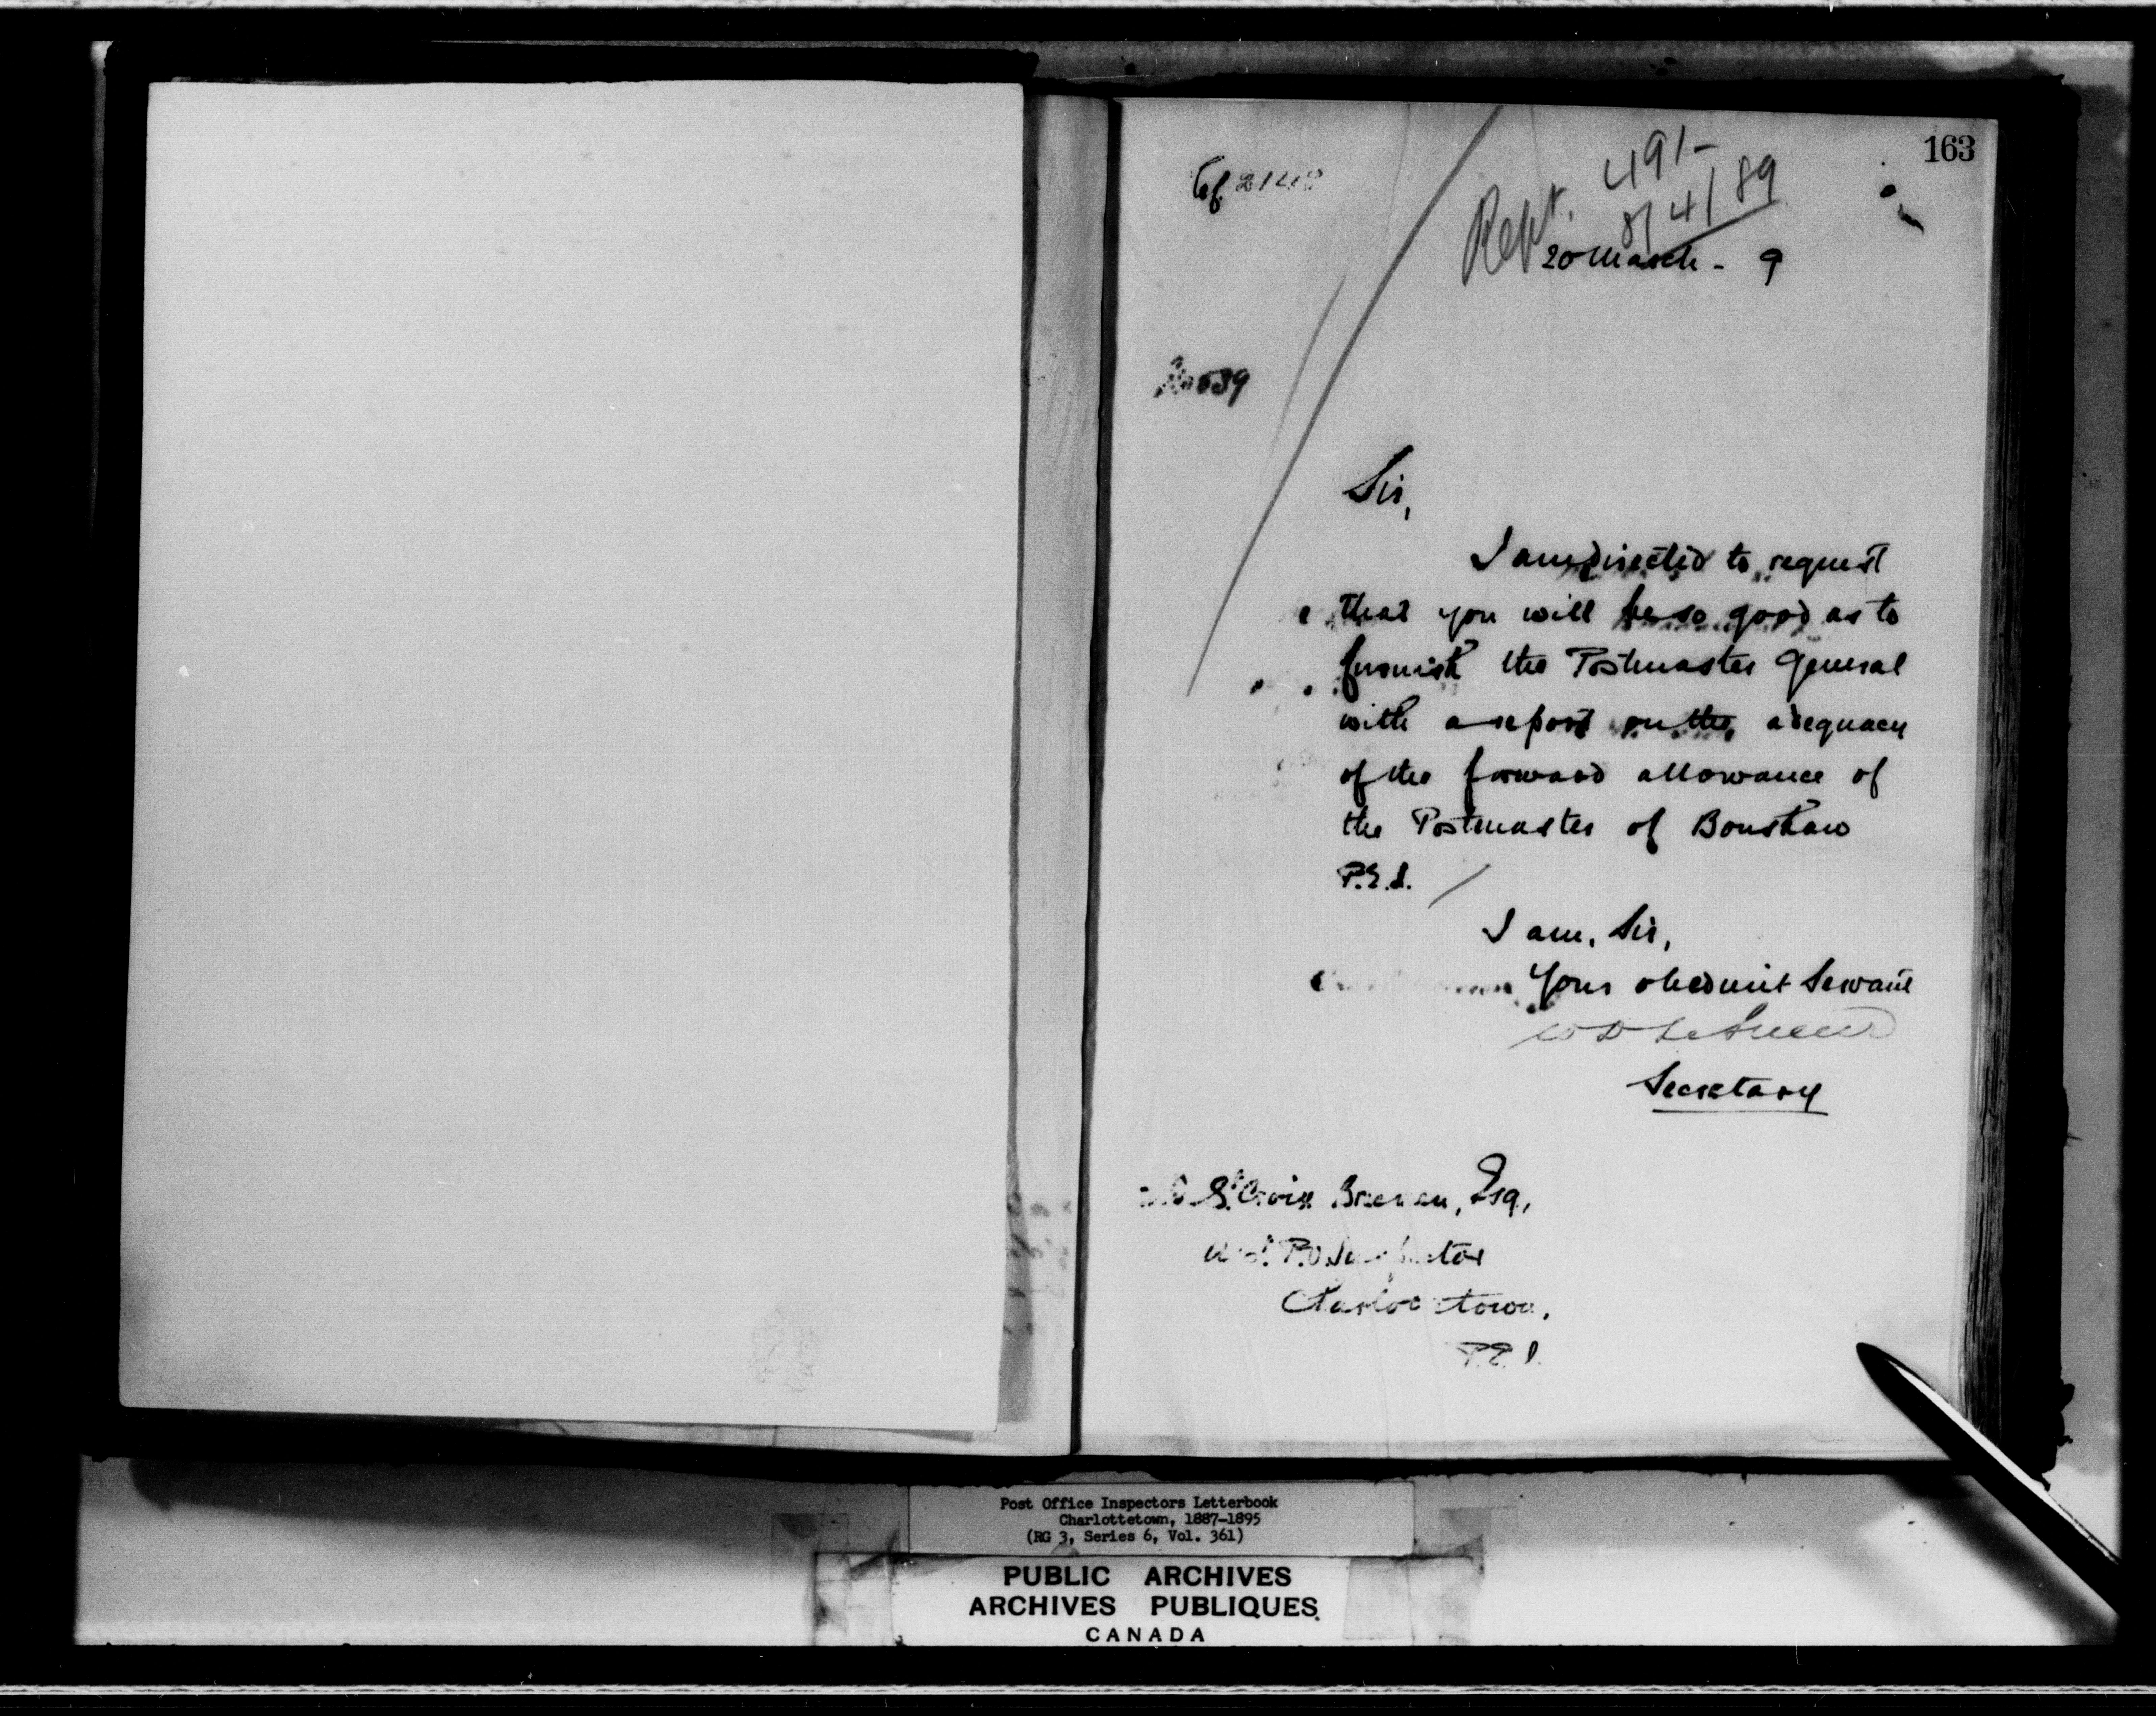 163
491-
Rept. 8/4/89
20 March - 9
539
Sir,
I am directed to request
that you will be so good as to
furnish the Postmaster General
with a report on the adequacy
of the forward allowance of
the Postmaster of Bonshaw
P.E.I.
I am, Sir,
Your obedient Servant
Secretary
St. Croix Brecken, Esq,
P.O. Inspector
Charlottetown,
P.E.I.
Post Office Inspectors Letterbook
Charlottetown, 1887-1895
(RG 3, Series 6, Vol. 361)
PUBLIC ARCHIVES
ARCHIVES PUBLIQUES
CANADA